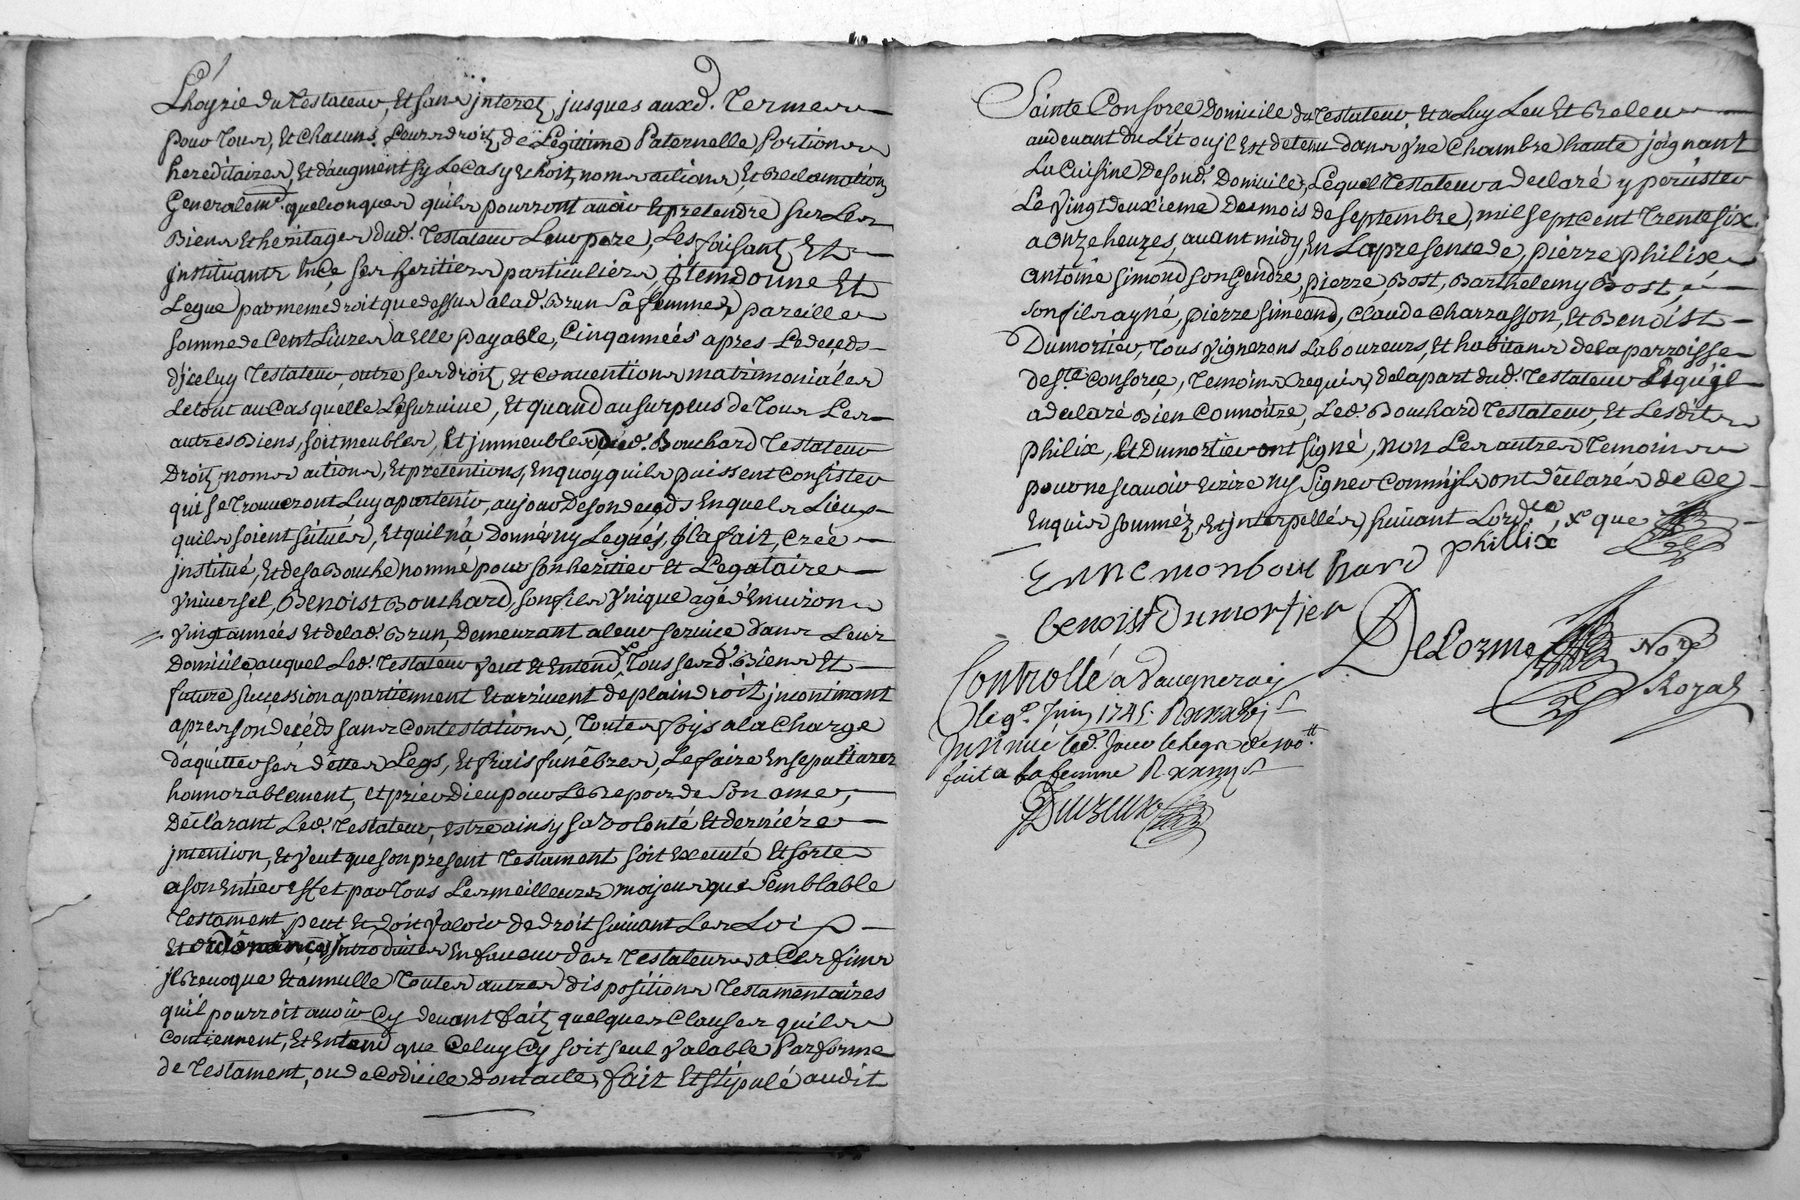 L'hoyrie du Testateur, Et sans jnterez, jusques auxd. Termes
pour Tous, Et Chacuns, Leurs droitz de Legitime Paternelle, Portions
hereditaires, Et d'augment sy Le Cas y Echoit, noms actions Et Reclamations
Generalemt. quelconques qu'ils pourront avoir Et pretendre Sur Les
Biens Et heritages dud. Testateur Leur pere, Les faisant, Et
jnstituants En Ce, Ses heritiers particuliers, jtem donne Et
Legue par meme droit que dessus a lad. Brun Sa femme, pareille
Somme de Cent Livres a Elle payable, Cinq années apres Le deceds
d'jceluy Testateur, outre Ses droitz, Et Conventions matrimoniales
Le tout au Cas qu'elle Le Survive, Et quand au Surplus de Tous Les
autres Biens, soit meubles, Et jmmeubles, dud. Bouchard Testateur
Droitz, noms actions, Et pretentions, En quoy qu'ils puissent Consister
qui Se Trouveront Luy apartenir, au jour De son deceds En quels Lieux
qu'ils soient Scitués, Et qu'il n'a, Donnés ny Legués, jl a fait, Créé
jnstitué, Et de sa Bouche nommé pour Son heritier Et Legataire
Vniversel, Benoist Bouchard, Son fils Vnique agé d'Environ
Vingt années Et de lad. Brun, Demeurant a leur Service dans Leur
domicile auquel Led. Testateur Veut Et Entend, x Tous Ses d. Biens Et
future Succession apartiennent Et arrivent de plain droit jncontinant
apres Son deceds sans Contestations, Toutes fois a la Charge
d'aquitter Ses dettes Legs, Et frais funèbres, Le faire Ensepulturer
honnorablement, Et prier Dieu pour Le Repos de Son ame,
Déclarant Led. Testateur, Estre ainsy Sa Volonté Et derniére
jntention, Et Veut que son présent Testament soit Executé Et Sorte
a son Entier Effet par Tous Les meilleurs moyens que Semblable
Testament peut Et doit Valoir de droit suivant Les Loix
Et ordonnances jntroduites En faveur des Testateurs a Ces fins
jl Revoque Et annulle Toutes autres dispositions Testamentaires
qu'il pourroit avoir Cy devant fait, quelques Clauses qu'ils
Contiennent, Et Entend que Celuy Cy soit seul Valable Par forme
de Testament, ou de Codicile Dont acte, fait Et Stipulé audit
Sainte Consorce Domicile du Testateur, Et a Luy Leu Et Releu
au devant du Lit ou jl Est detenu dans Vne Chambre haute joignant
La Cuisine De sond. Domicile, Lequel Testateur a declaré y persister
Le Vingt deuxieme Des mois de Septembre, mil sept cent Trente six
a Onze heures, avant midy, En La presence de, pierre philix
antoine Simond son Gendre, pierre Bost, Barthelemy Bost,
son fils ayné, pierre Simeand, Claude Charrasson, Et Benoist
Dumortier, Tous Vignerons Laboureurs, Et habitans de la parroisse
de Ste. Consorce, Temoins Requis, de la part dud. Testateur Lequel
a declaré Bien Connoitre, Led. Bouchard Testateur, Et Lesdits
philix, Et Dumortier ont signé, non Les autres Temoins
pour ne sçavoir Ecrire ny Signer Comm'jls ont déclarés de Ce
Enquis sommés, Et jnterpellés, Suivant Lordce, x que
Ennemon bouchard phillix
benoist dumortier
DeLorme Nore
Royal
Controllé a Vaugneray
le 9e. Juin 1745.
jnsinué led. Jour le legs de 100tt
fait a la femme